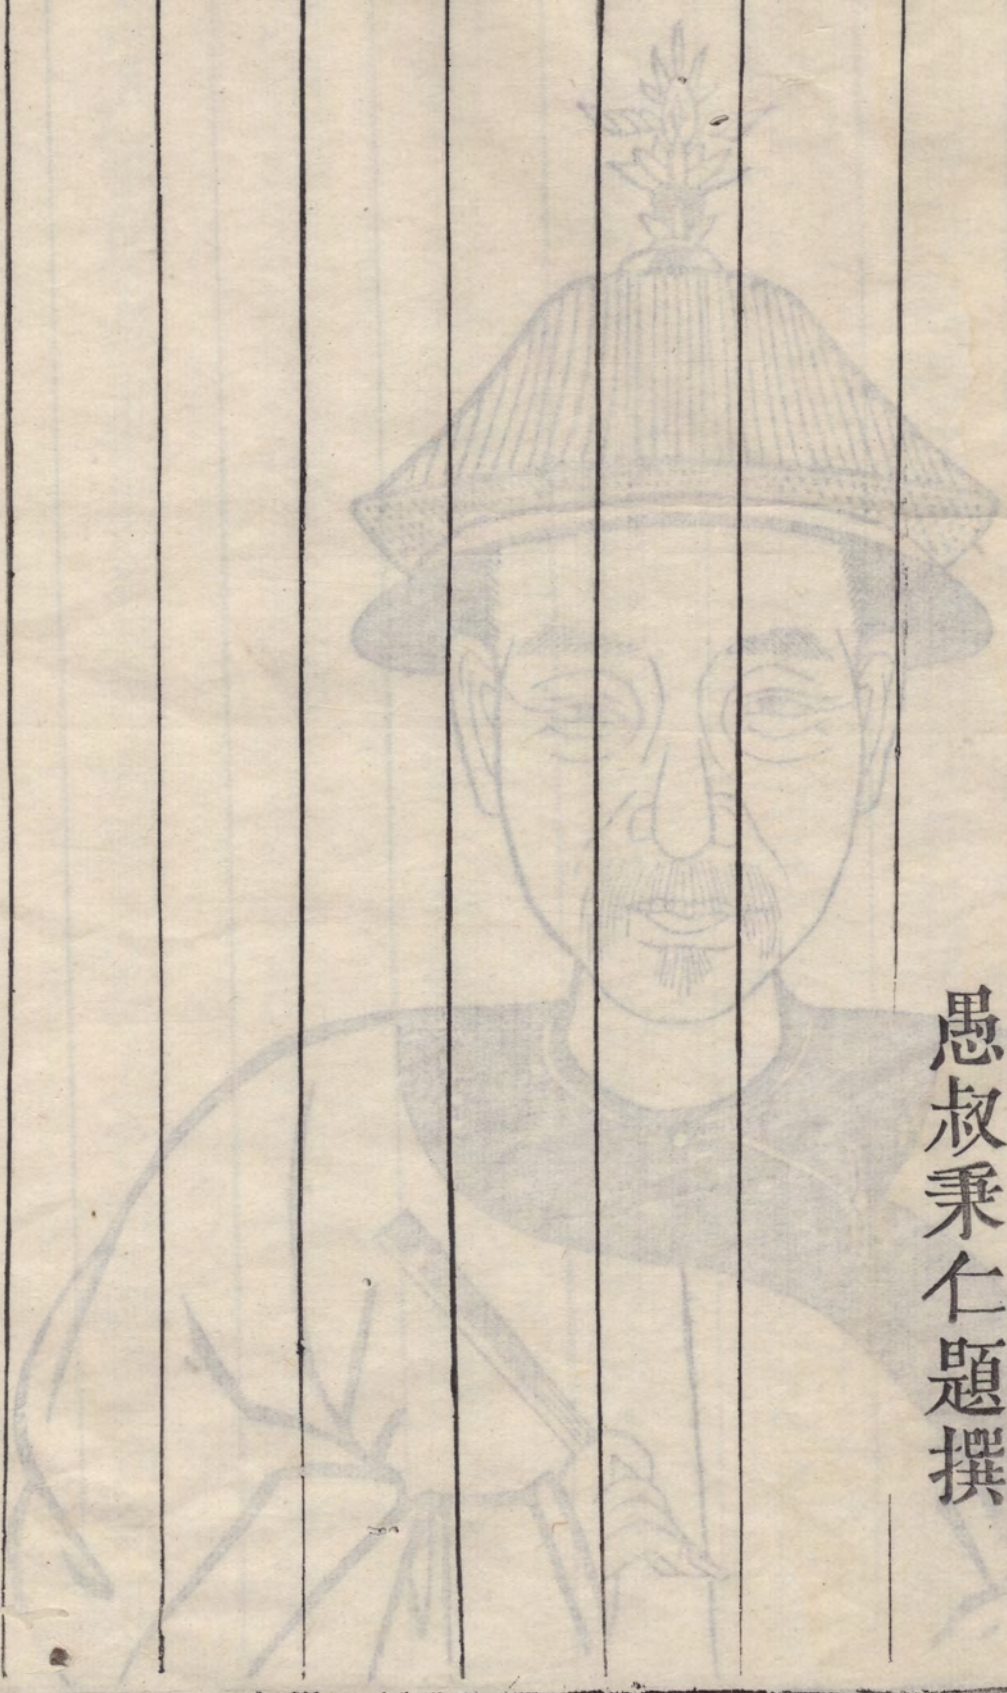 愚叔秉仁題撰